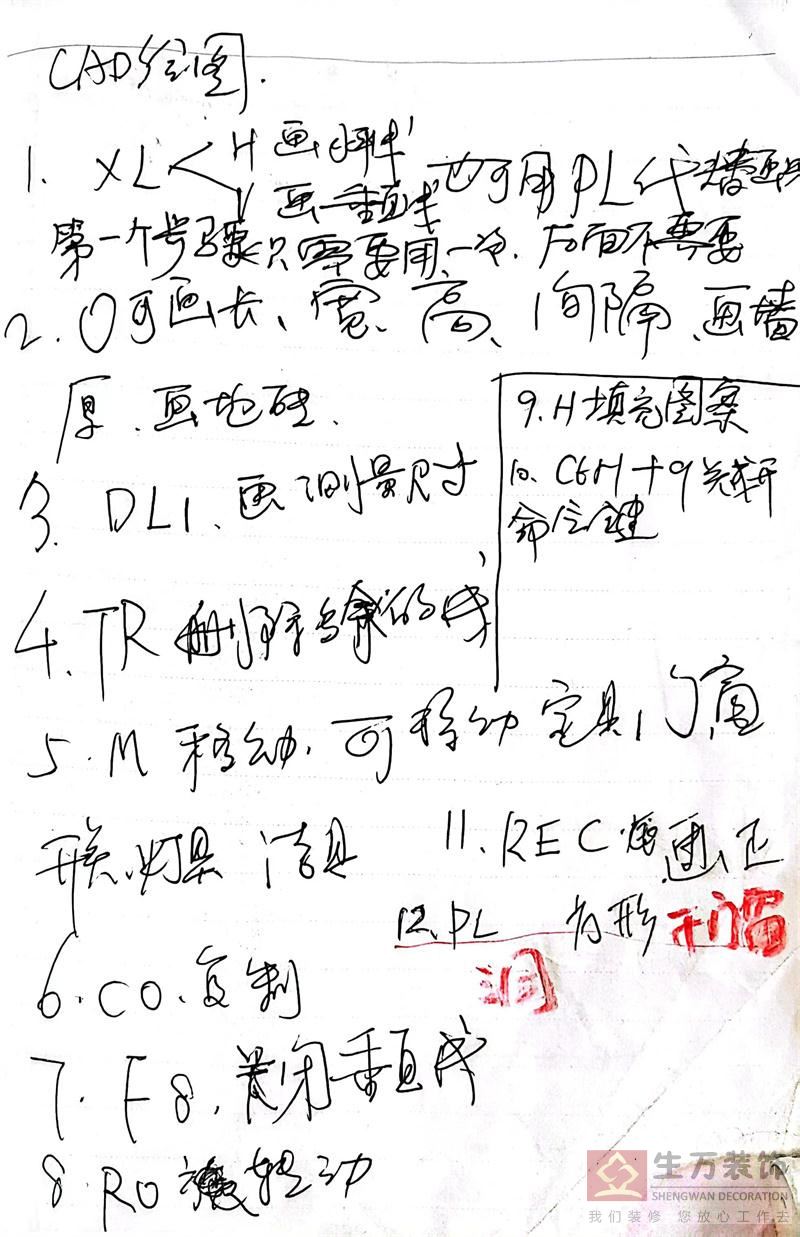 CAD绘图.
1. XL<H 画水平线
V 画垂直线 也可用PL代替画
第一个步骤只需要用一次.后面不需要
2. O可画长、宽、高、间隔、画墙
厚、画地砖.
3. DLI、画测量尺寸
4. TR 删除多余的线
5. M 移动. 可移动家具、门窗
开关、灯具、洁具
6. CO. 复制
7. F8. 关闭垂直线
8. RO 旋转 转动
9. H 填充图案
10. +9
命令键
11. REC 画正
方形
12. PL 开门窗
洞
生万装饰
SHENGWAN DECORATION
我们装修 您放心工作去